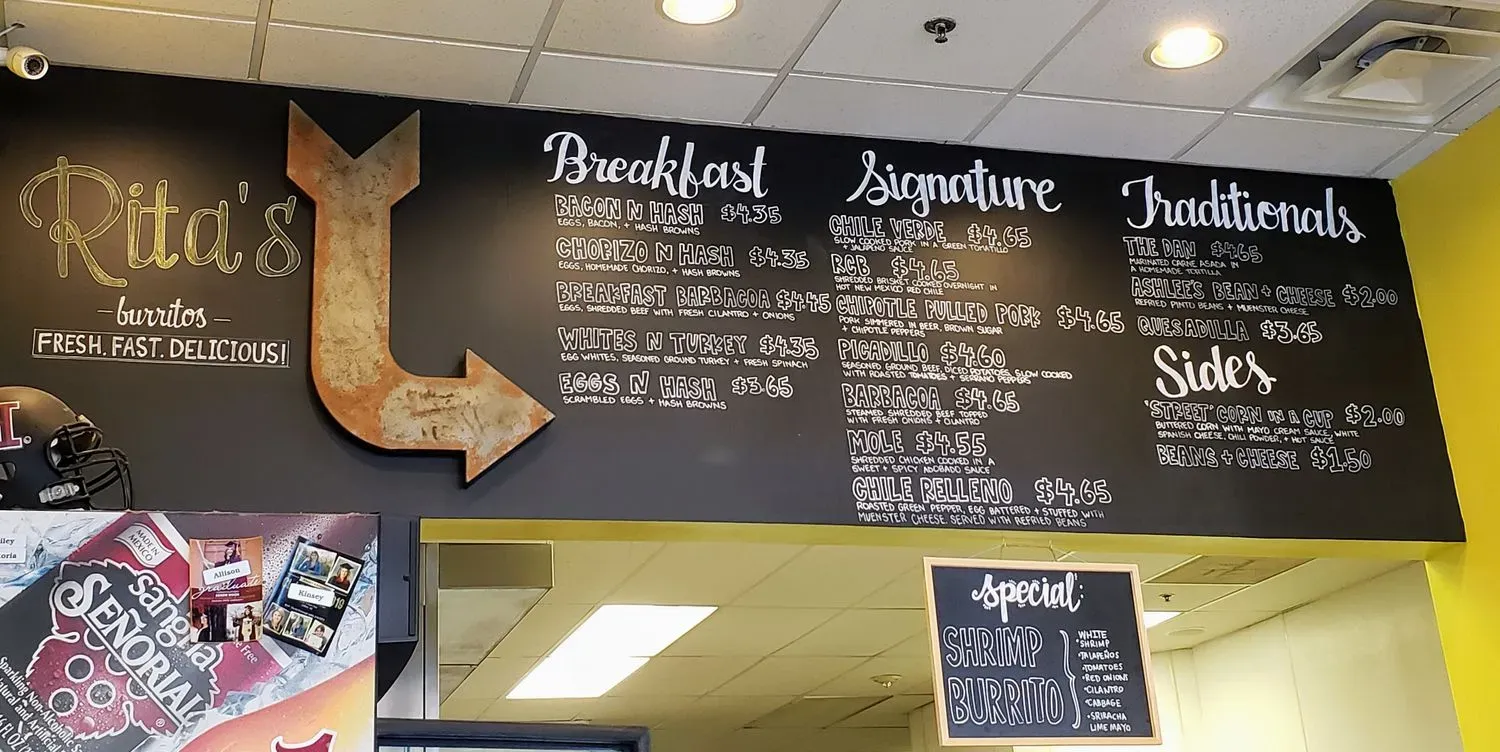 Rita's
burritos
FRESH. FAST. DELICIOUS!
Breakfast
BACON N HASH $4.35
EGGS, BACON, + HASH BROWNS
CHORIZO N HASH $4.35
EGGS, HOMEMADE CHORIZO, + HASH BROWNS
BREAKFAST BARBACOA $4.45
EGGS, SHREDDED BEEF WITH FRESH CILANTRO + ONIONS
WHITES N TURKEY $4.35
EGG WHITES, SEASONED GROUND TURKEY + FRESH SPINACH
EGGS N HASH $3.65
SCRAMBLED EGGS + HASH BROWNS
Signature
CHILE VERDE $4.65
SLOW COOKED PORK IN A GREEN TOMATILLO
+ JALAPENO SAUCE
RCB $4.65
SHREDDED BRISKET COOKED OVERNIGHT IN
HOT NEW MEXICO RED CHILE
CHIPOTLE PULLED PORK $4.65
PORK SIMMERED IN BEER, BROWN SUGAR
+ CHIPOTLE PEPPERS
PICADILLO $4.60
SEASONED GROUND BEEF, DICED POTATOES, SLOW COOKED
WITH ROASTED TOMATOES + SERRANO PEPPERS
BARBACOA $4.65
STEAMED SHREDDED BEEF TOPPED
WITH FRESH ONIONS + CILANTRO
MOLE $4.55
SHREDDED CHICKEN COOKED IN A
SWEET + SPICY ADOBADO SAUCE
CHILE RELLENO $4.65
ROASTED GREEN PEPPER, EGG BATTERED + STUFFED WITH
MUENSTER CHEESE. SERVED WITH REFRIED BEANS
Traditionals
THE DAN $4.65
MARINATED CARNE ASADA IN
A HOMEMADE TORTILLA
ASHLEE'S BEAN + CHEESE $2.00
REFRIED PINTO BEANS + MUENSTER CHEESE
QUESADILLA $3.65
Sides
'STREET' CORN IN A CUP $2.00
BUTTERED CORN WITH MAYO CREAM SAUCE, WHITE
SPANISH CHEESE, CHILI POWDER, + HOT SAUCE
BEANS + CHEESE $1.50
Special:
SHRIMP
BURRITO
WHITE
SHRIMP
•JALAPEÑOS
•TOMATOES
•RED ONIONS
•CILANTRO
•CABBAGE
•SRIRACHA
LIME MAYO
MADE IN
MEXICO
sangria
SEÑORIAL
Allison
graduate
Kinsey
Sparkling Non-Alcoholic